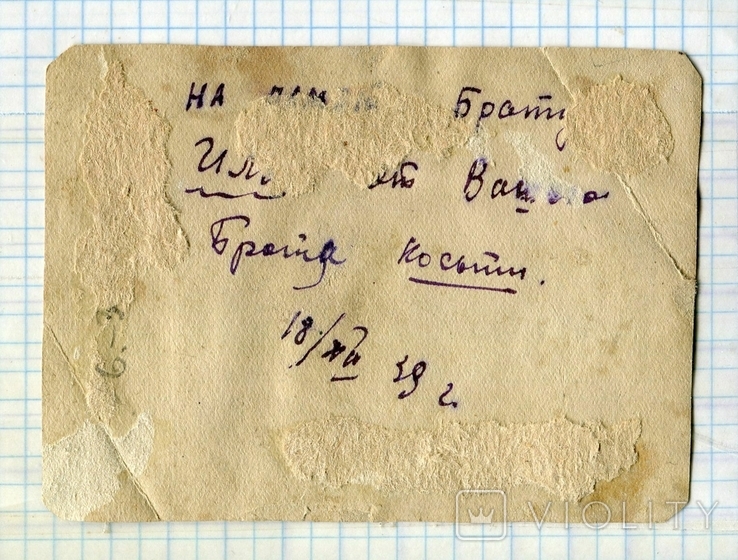 на Брату
от Вашего
Брата Костьи.
18/XII 39 г.
6.-3
VIOLITY